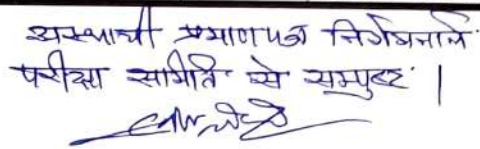 अस्थायी प्रमाणपत्र निर्गमनार्थ
परीक्षा समिति से सम्पुष्ट |